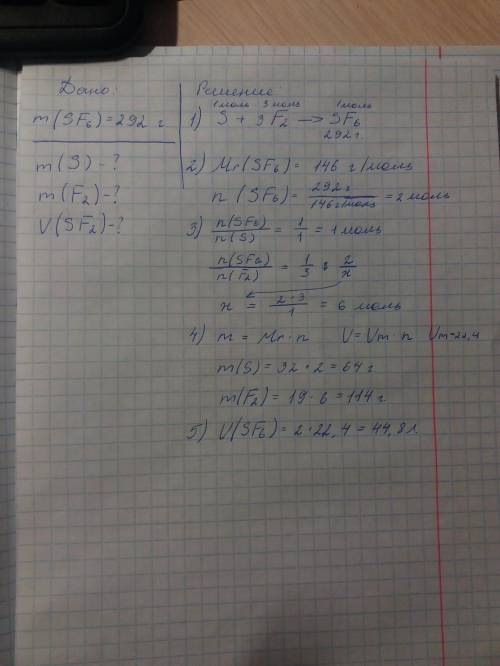 Дано:
m(SF₆) = 292 г
m(S) - ?
m(F₂) - ?
V(SF₂) - ?
Решение
1 моль 3 моль 1 моль
1) S + 3F₂ —> SF₆
292 г.
2) Mr(SF₆) = 146 г/моль
n (SF₆) = 292 г / 146 г/моль = 2 моль
3) n(SF₆) / n(S) = 1/1 = 1 моль
n(SF₆) / n(F₂) = 1/3 : 2/x
x = 2·3 / 1 = 6 моль
4) m = Mr·n V = Vm·n Vm=22,4
m(S) = 32 · 2 = 64 г
m(F₂) = 19 · 6 = 114 г
5) V(SF₆) = 2·22,4 = 44,8 л.